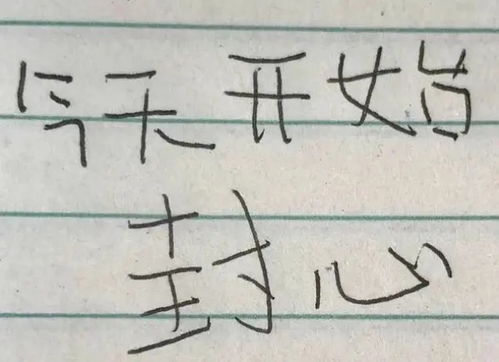 今天开始
封心